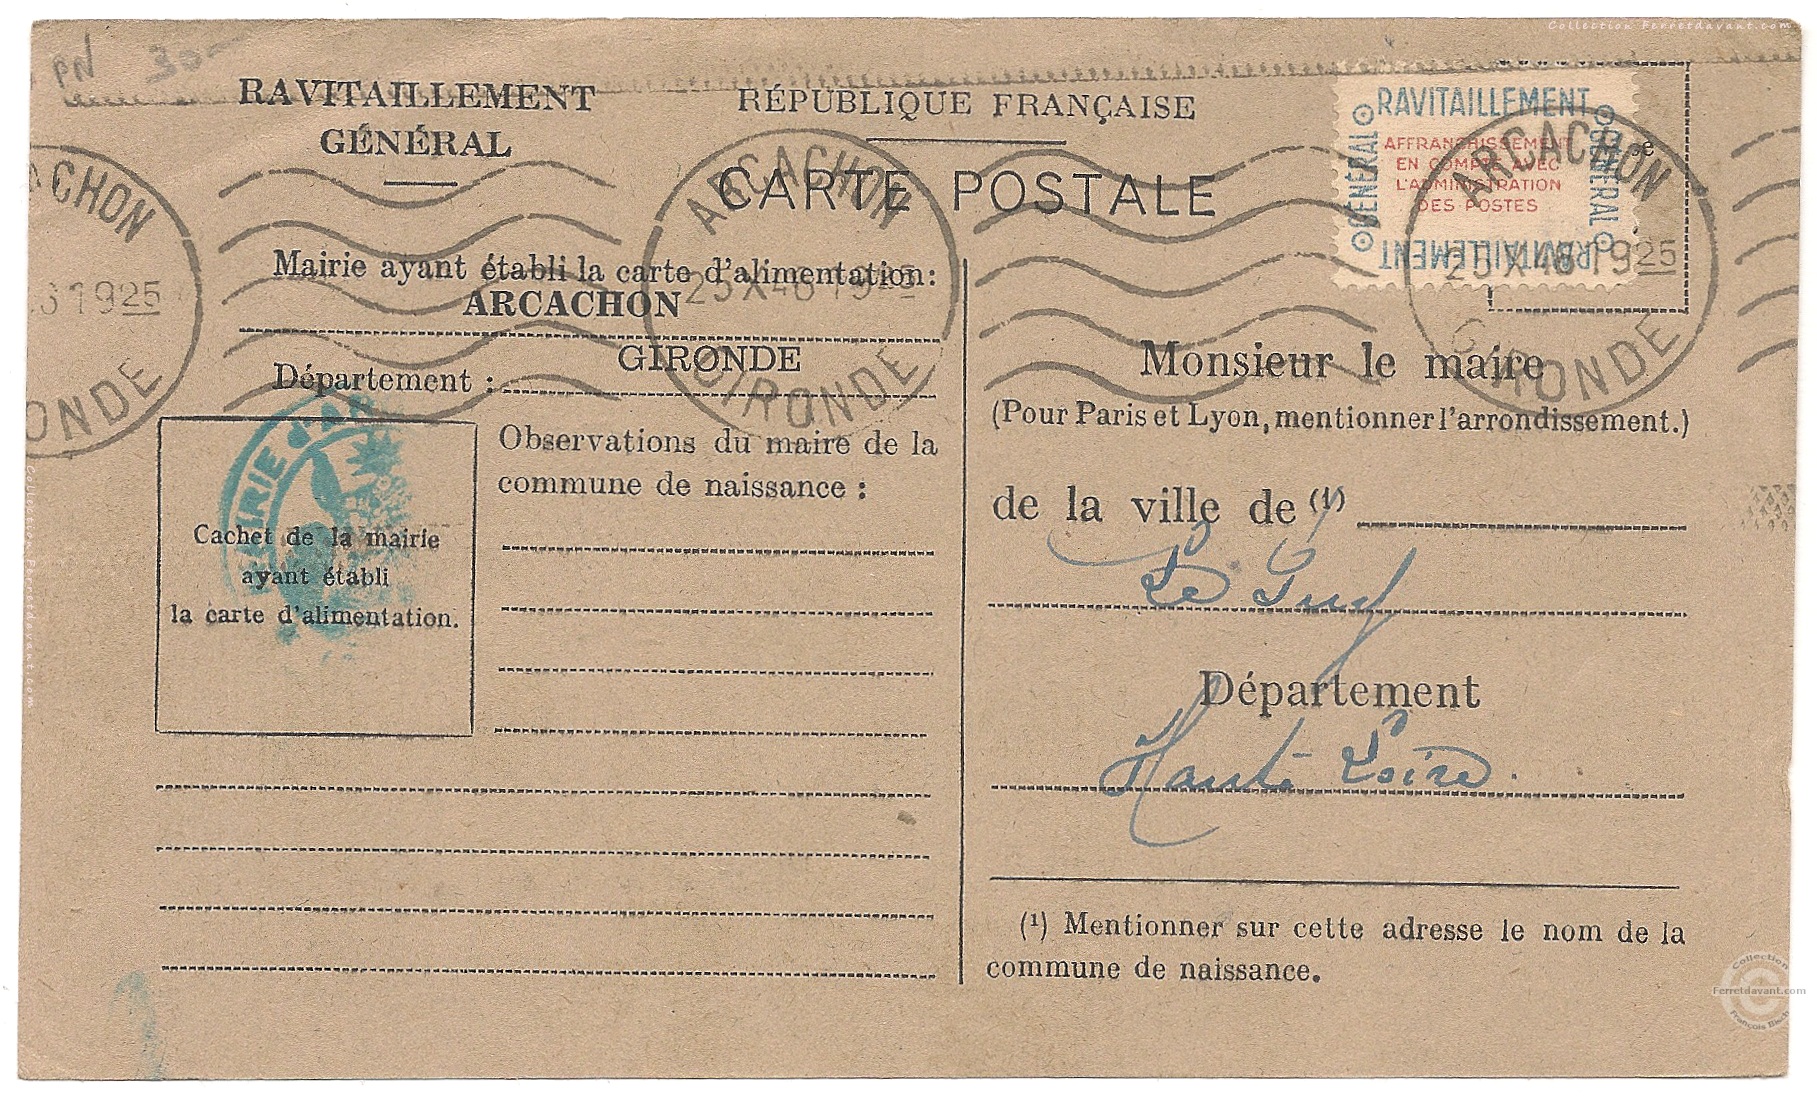 Collection Ferretdavant.com
PN 30-
RAVITAILLEMENT
GÉNÉRAL
RÉPUBLIQUE FRANÇAISE
CARTE POSTALE
RAVITAILLEMENT
GÉNÉRAL
AFFRANCHISSEMENT
EN COMPTE AVEC
L'ADMINISTRATION
DES POSTES
GÉNÉRAL
RAVITAILLEMENT
ARCACHON
25 X 46 1925
GIRONDE
ARCACHON
25 X 46 1925
GIRONDE
ACHON
6 1925
ONDE
Mairie ayant établi la carte d'alimentation:
ARCACHON
Département : GIRONDE
MAIRIE D'AR
Cachet de la mairie
ayant établi
la carte d'alimentation.
Observations du maire de la
commune de naissance :
Monsieur le maire
(Pour Paris et Lyon, mentionner l'arrondissement.)
de la ville de (1)
Le Puy
Département
Haute Loire.
(1) Mentionner sur cette adresse le nom de la
commune de naissance.
Collection Ferretdavant.com
Collection
Ferretdavant.com
François Bisch